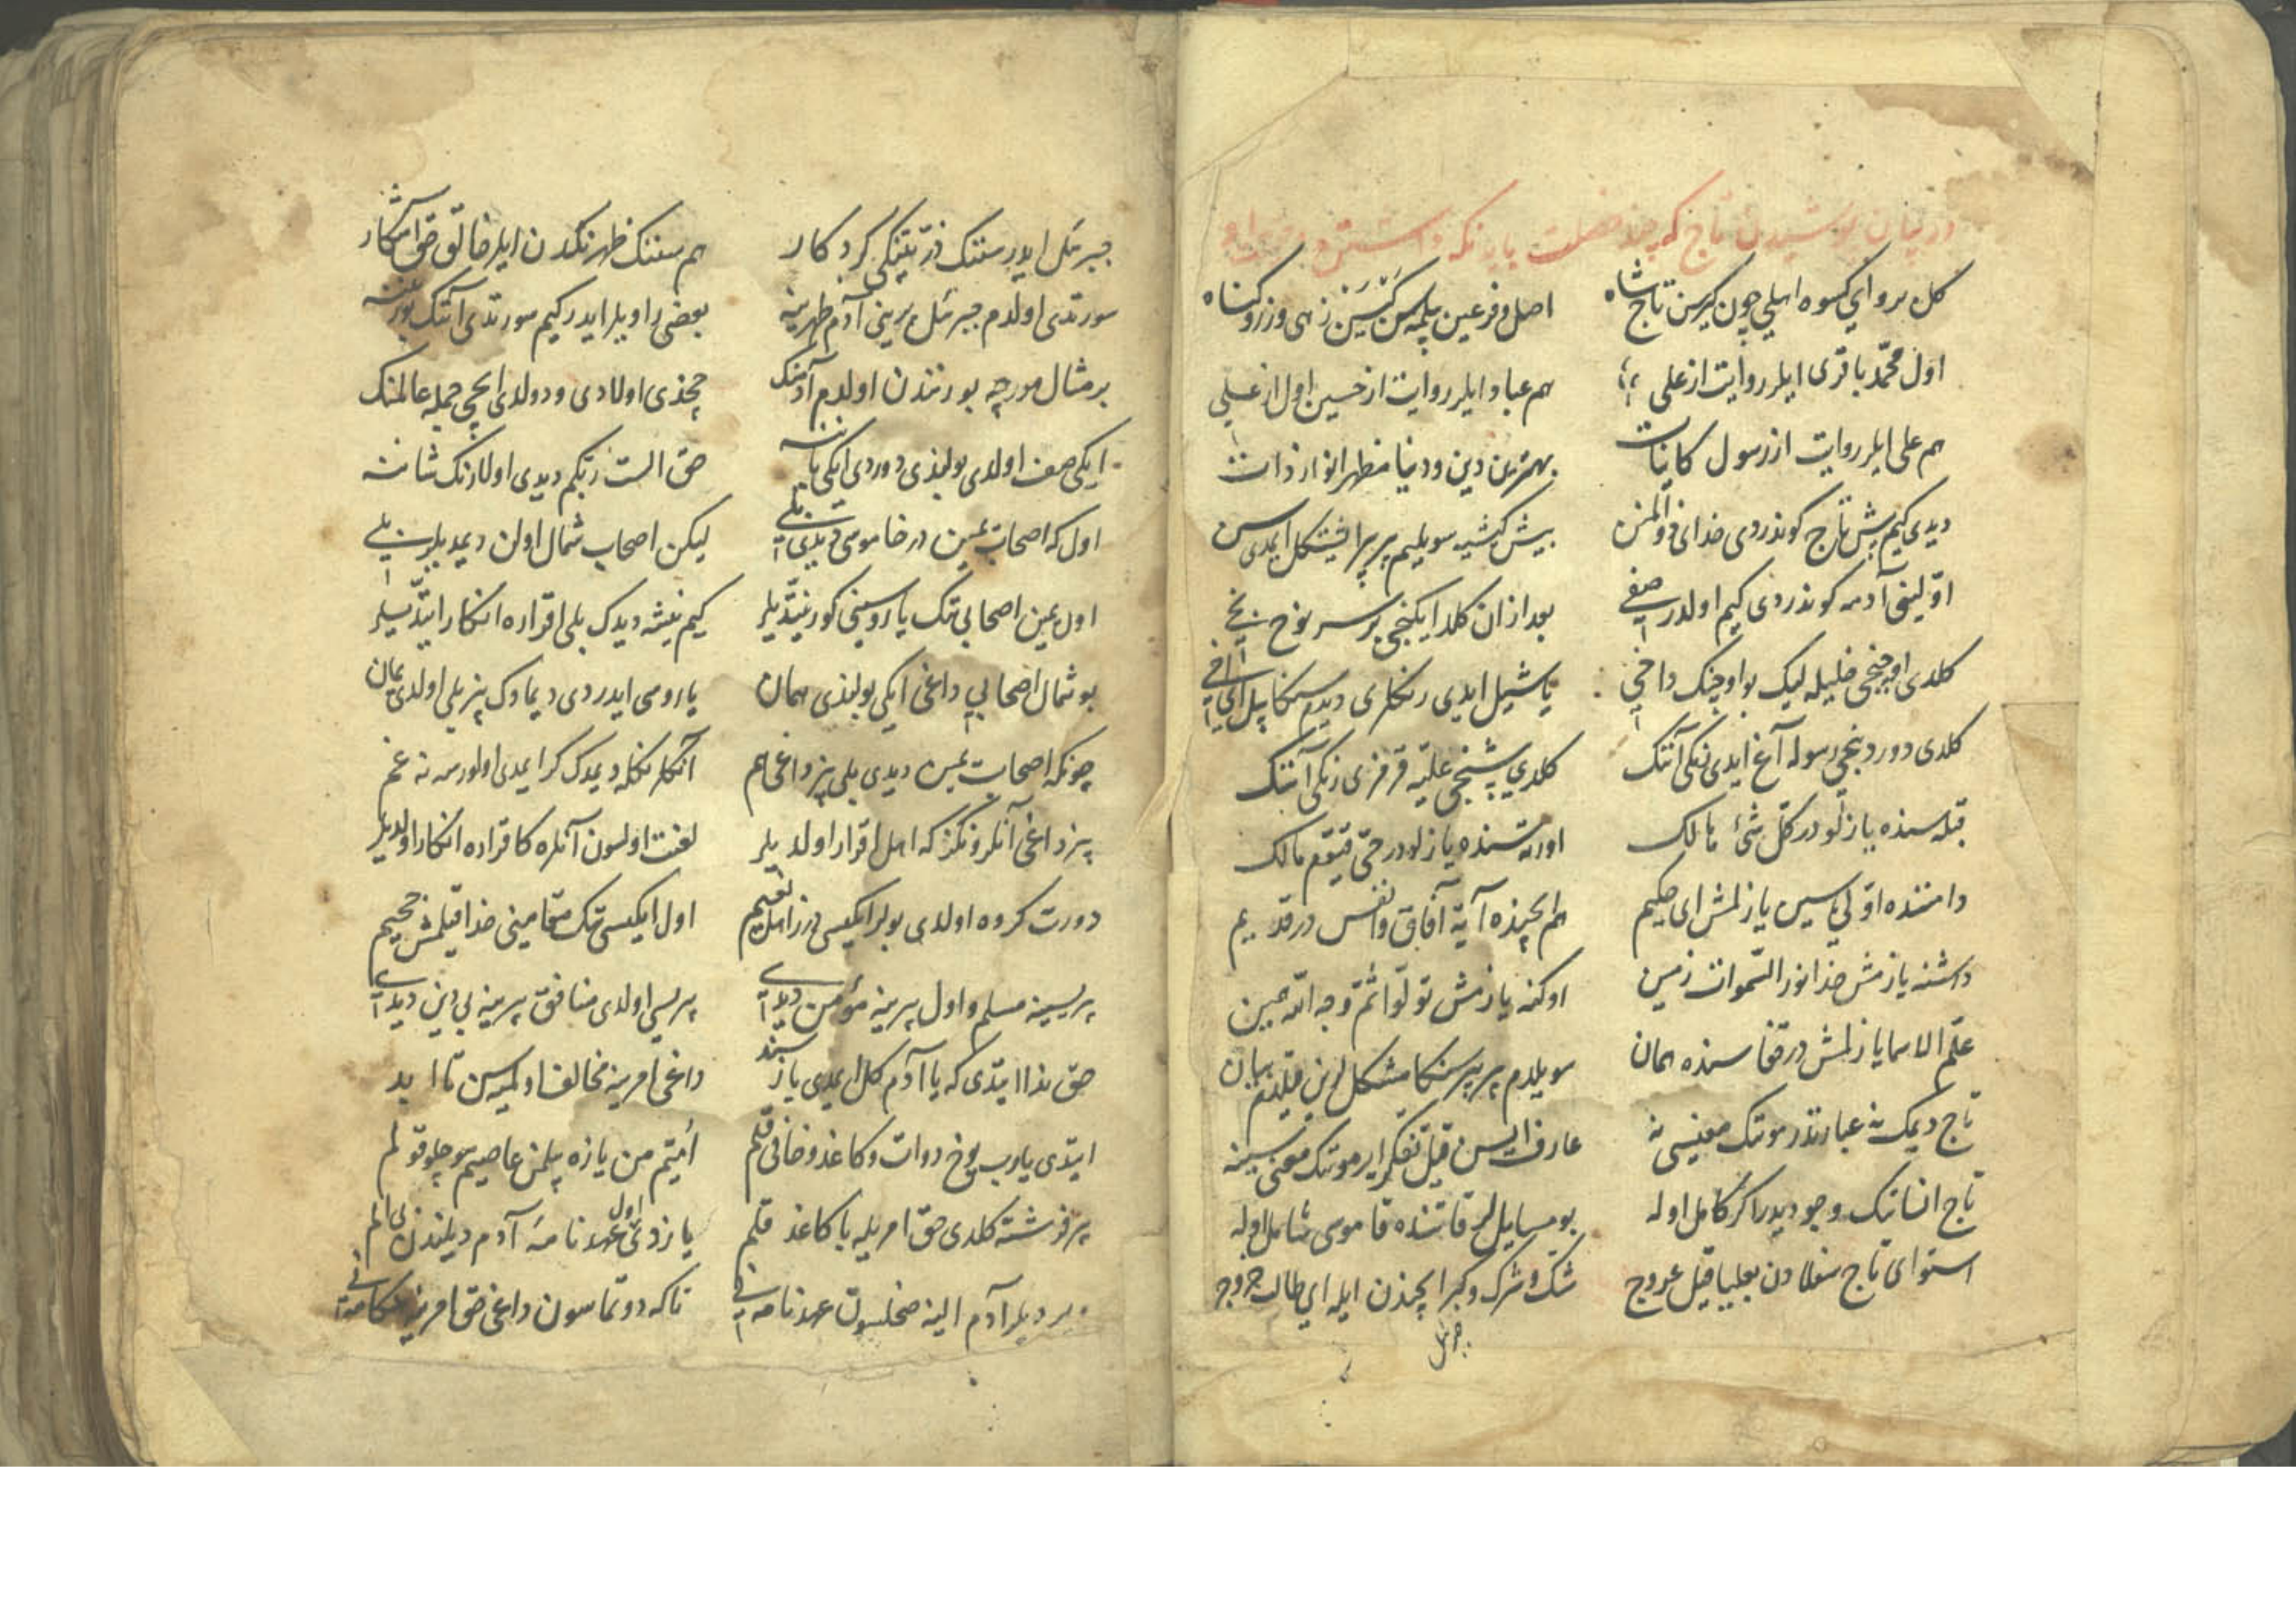 در بیان پوشیدن تاج که چند خصلت باید نکه داشتن
کل برو ای کسوه اهلی چون کیرسن تاج شاه اصل و فرعین بیلمه سن
اول محمد باقری ایلر روایت از علی هم عباد ایلر روایت از حسین اول از علی
هم علی ایلر روایت از رسول کاینات بهترین دین و دنیا مظهر انوار ذات
دیدی کیم بش تاج کوندردی خدای ذو المنن بیش کشیه سویلیم بر بر ایشتکل ایمدی سن
اولینی آدمه کوندردی کیم اولدر صفی بعد از ان کلدی ایکنجی بر سر نوح نجی
کلدی اوچنجی خلیله لیک بو اوچنک داخی یاشیل ایدی رنکلری دیدم سکا بیل ای اخی
کلدی دوردنجی رسوله آغ ایدی رنکی آننک کلدی بشنجی علیه قرمزی رنکی آننک
قبله سنده یازلودر کل شئ هالک اورته سنده یازلودر حی قیوم مالک
دامننده اولی یاسین یازلمش ای حکیم هم ایچنده آیة آفاق و انفس در قدیم
داشنه یازمش خدا نور السموات زمین اوکنه یازمش تولوا ثم وجه الله مبین
علم الاسما یازلمش در قفاسنده همان سویلدم بر بر سکا مشکللرین قیلدم بیان
تاج دیمک نه عبارتدر مونک معنیسی نه عارف ایسن قیل تفکر ایر مونک معنیسینه
تاج انسانک وجودیدر اکر کامل اوله بو مسایللر قاتنده قاموسی شامل اوله
استوای تاج سفلادن بعلیا قیل عروج شک و شرک و کبر ایچندن ایله ای طالب خروج
جبرئل
جبرئل ایدر سننک ذریتنکی کردکار هم سننک ظهرنکدن ایلر خالق حق آشکار
سورتدی اولدم جبرئل برینی آدم ظهرینه بعضی راویلر ایدر کیم سورتدی آننک بورنینه
بر مثال مورچه بورنندن اولدم آدمنک چخدی اولادی و دولدی ایچی جمله عالمنک
ایکی صف اولدی بولنذی دوردی ایکی یاننه حق الست ربکم دیدی اولارنک شاننه
اول که اصحاب یمین در خاموسی دیدی بلی لیکن اصحاب شمال اولن دیمدیلر بلی
اول یمین اصحابی نک یاروسینی کور نیتدیلر کیم نیشه دیدک بلی اقراره انکار ایتدیلر
بو شمال اصحابی داغی ایکی بولنذی همان یاروسی ایدردی دیمادک بیز بلی اولدی یمان
چونکه اصحاب یمین دیدی بلی بیز داغی هم آنکلر نکله دیمدک کر ایمدی اولورسه نه غم
بیز داغی آنلرونکز که اهل اقرار اولدیلر لعنت اولسون آنلره کا قراره انکار اولدیلر
دورت کروه اولدی بولر ایکیسی در اهل نعیم اول ایکیسی نک مقامینی خدا قیلمش جحیم
بریسینه مسلم و اول برینه مؤمن دیدی بریسی اولدی منافق برینه بی دین دیدی
حق ندا ایتدی که یا آدم کل ایمدی یاز سند داغی امرینه مخالف اولمیه سن تا ابد
ایتدی یا رب یوخ دوات و کاغذ و خانی قلم اُمّیّم من یازه بیلمن عاصیم سوچلو قولم
بر فرشته کلدی حق امریله با کاغذ قلم یازدی اول عهد نامهٔ آدم دیلندن بی الم
ویردیلر آدم الینه صخلسون عهد نامه نی تا که دوتماسون داغی حق امرینه